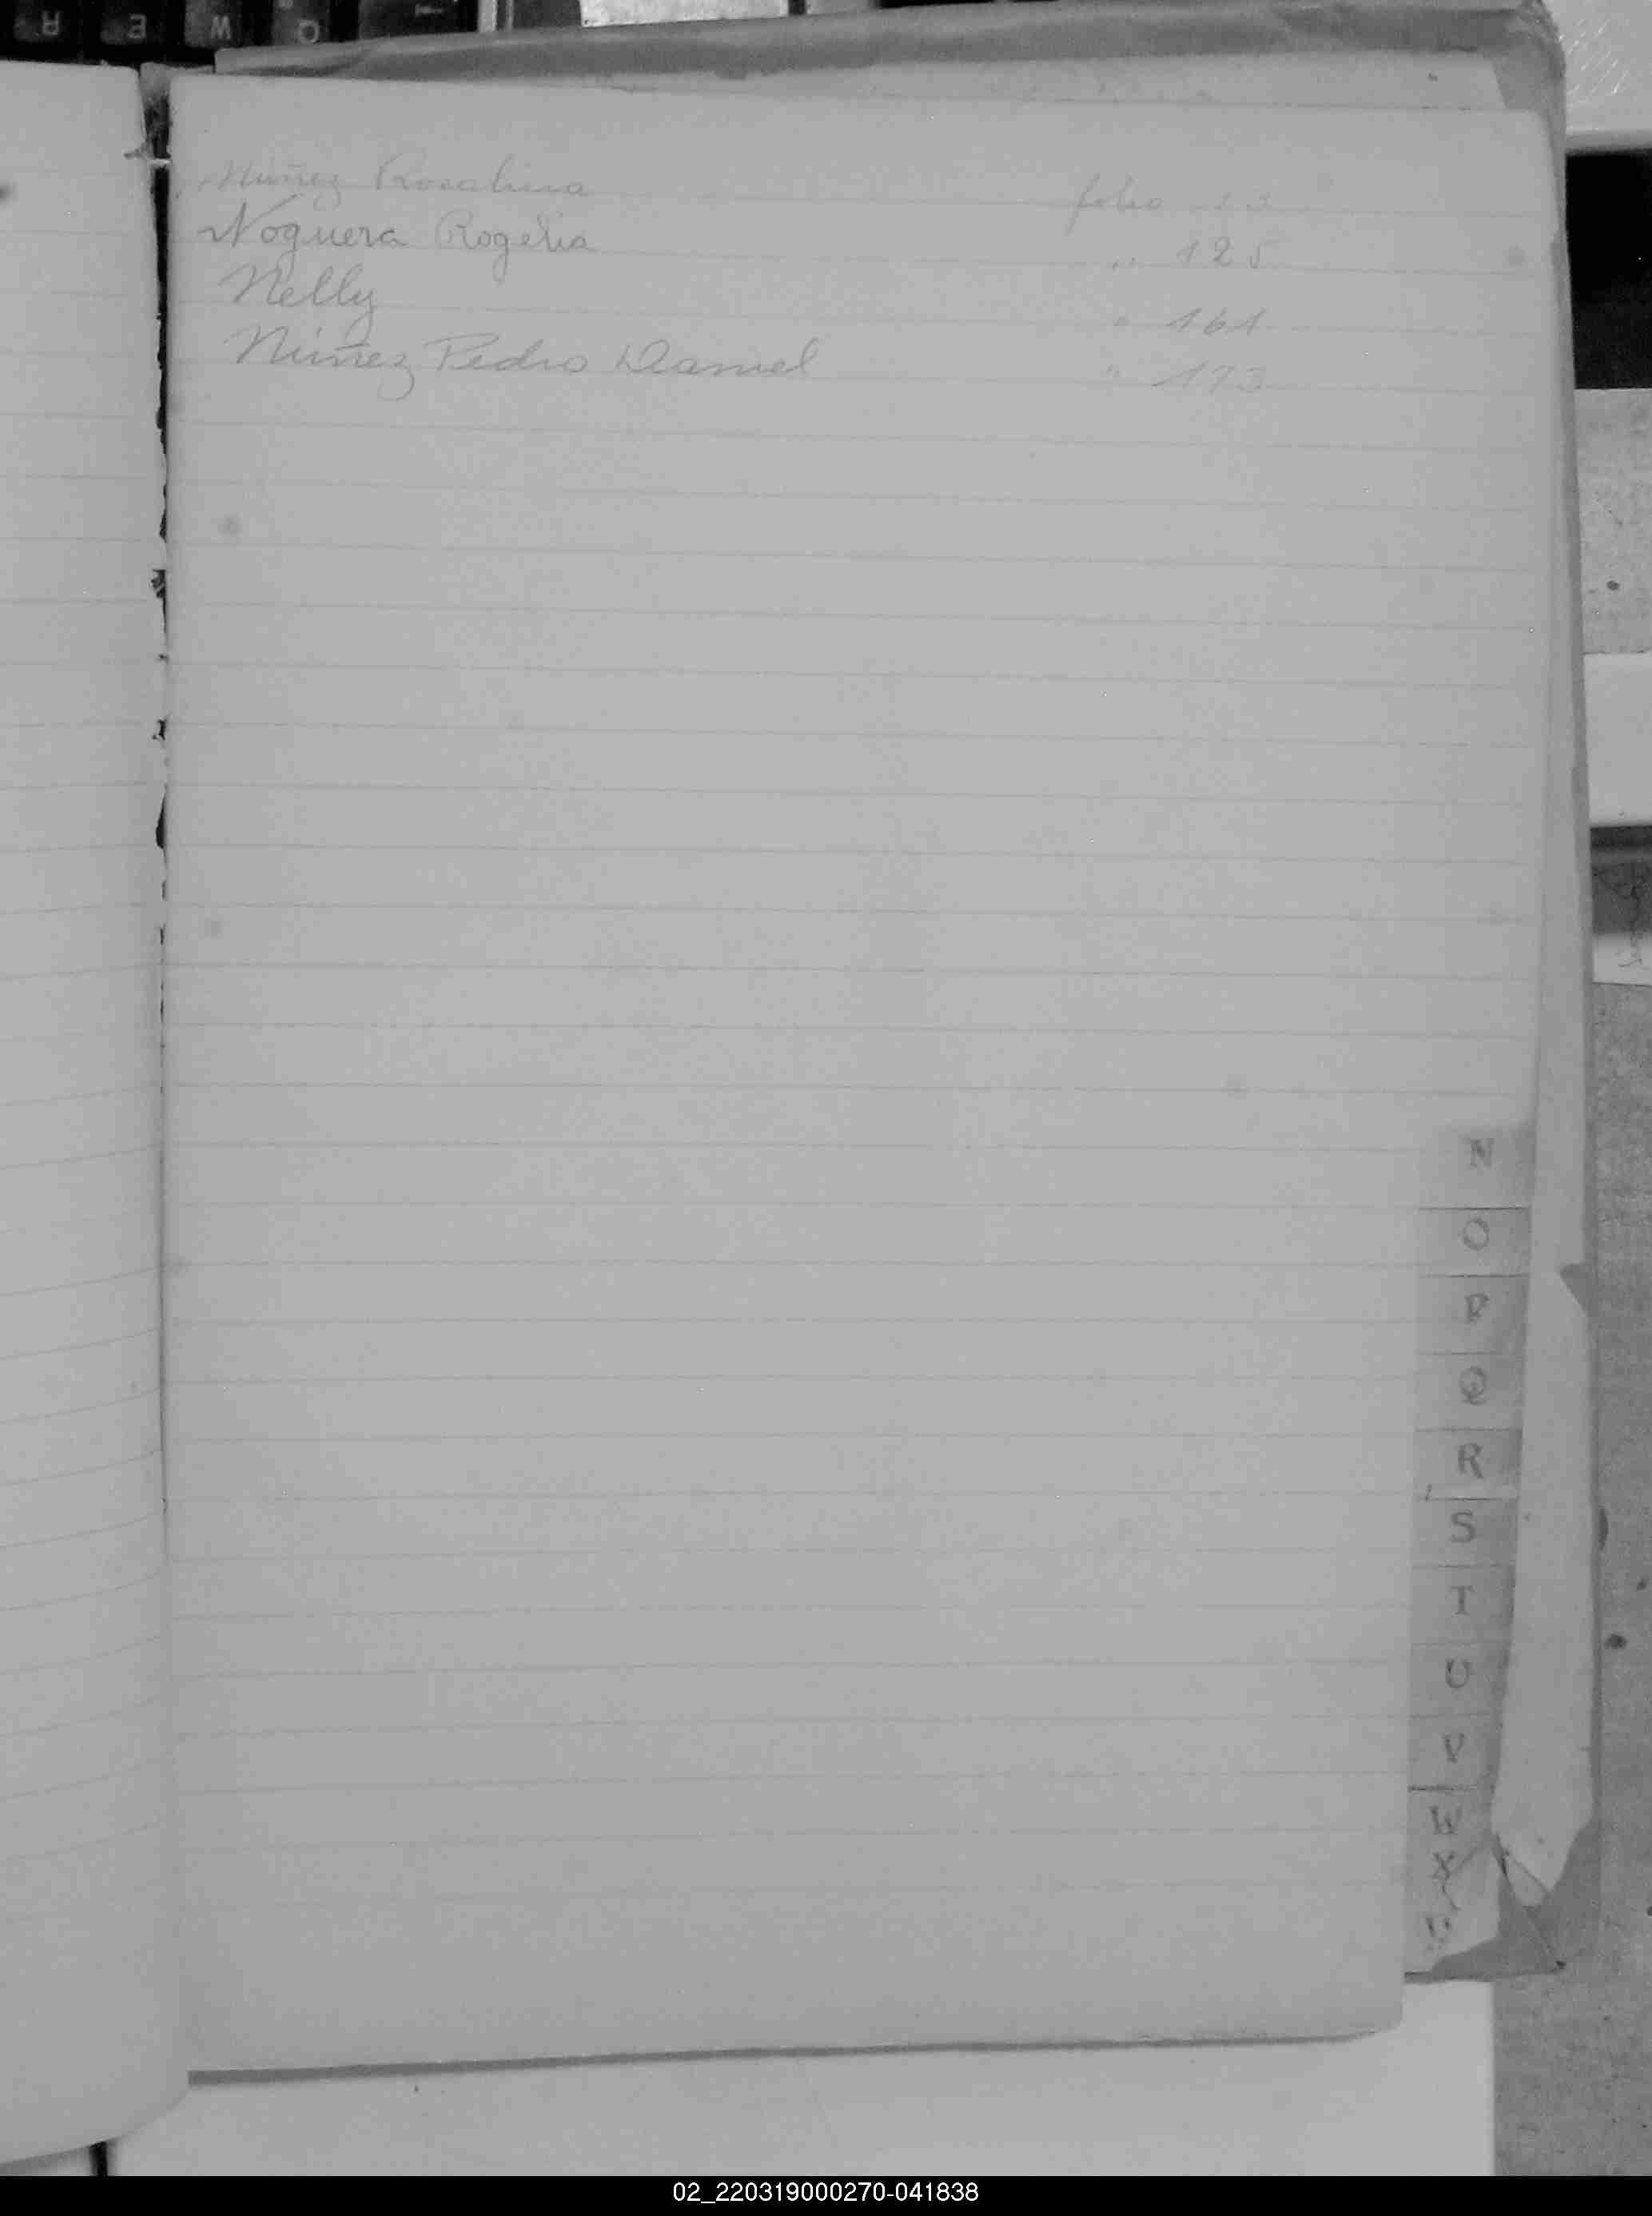 Núñez Rosalina folio 23
Noguera Rogelia " 125
Nelly " 161
Núñez Pedro Daniel " 173
N
O
P
Q
R
S
T
U
V
W
X
02_220319000270-041838